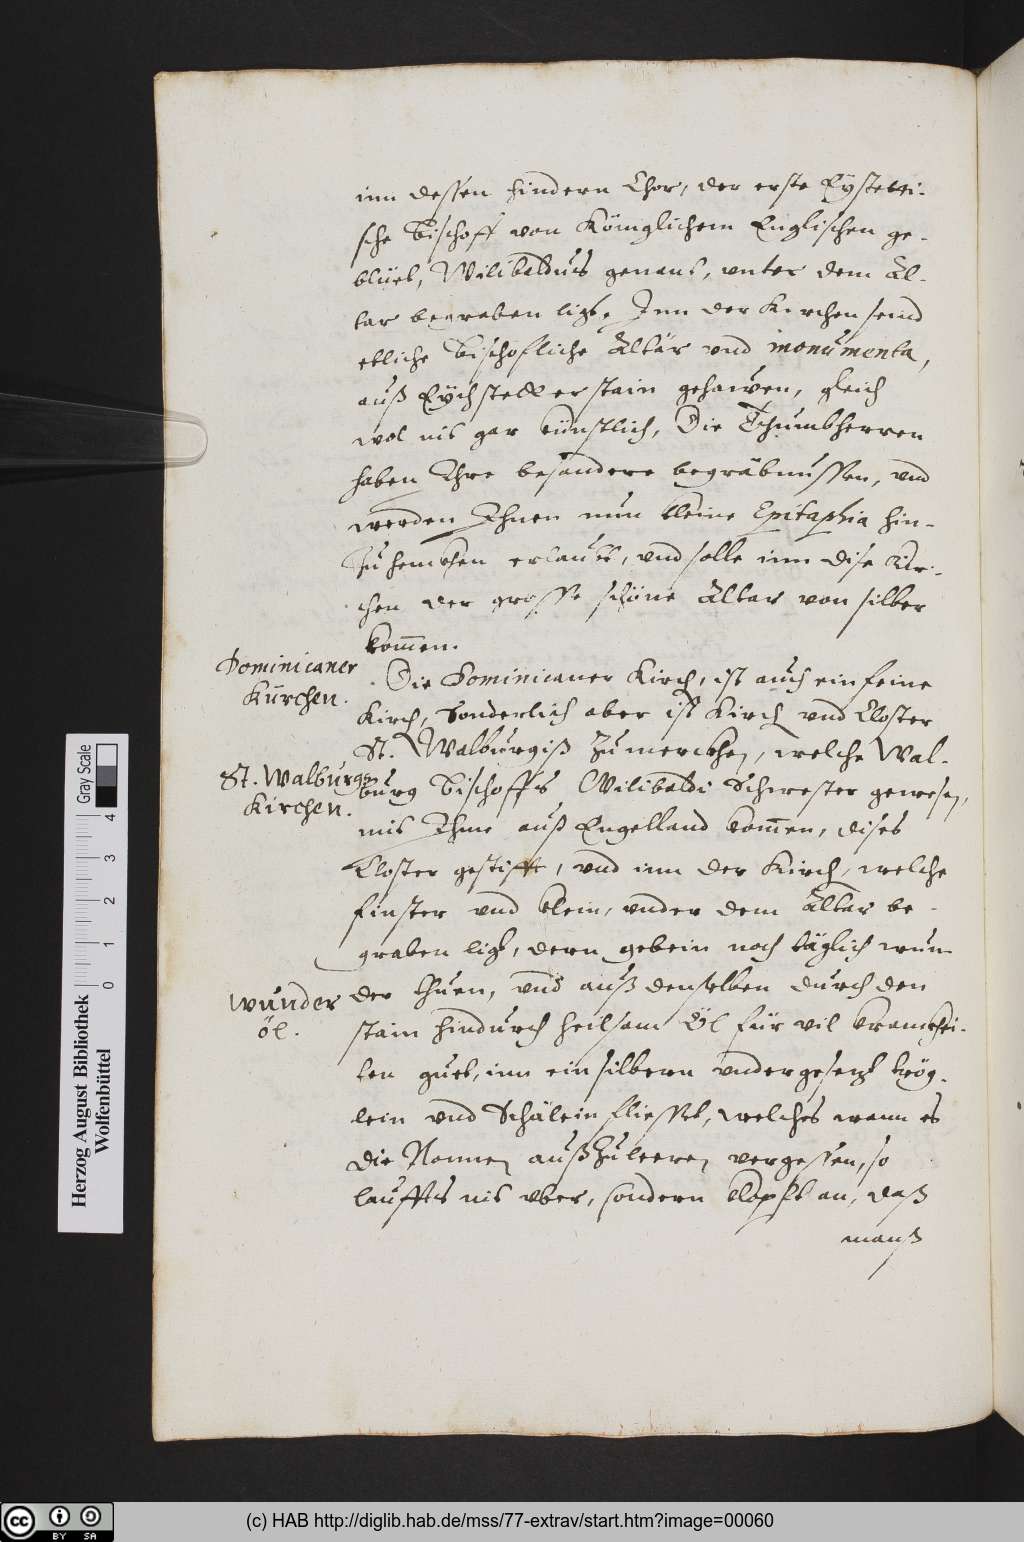 inn dessen hindern Chor, der erste Eystetti-
sche Bischoff von Königlichem Englischen ge-
blüet, Wilibaldus genant, vnter dem Al-
tar begraben ligt. Inn der Kirchen seind
etliche Bischofliche Altär vnd monumenta,
auß Eychstetter stain gehawen, gleich
wol nit gar künstlich, Die Thumbherren
haben Ihre besondere begräbnussen, vnd
werden Ihnen nun kleine Epitaphia hin-
zuhenckhen erlaubt, vnd solle inn dise Kir-
chen der grosse schöne Altar von silber
kom̄en.
Dominicaner
Kürchen.
Die Dominicaner Kirch, ist auch ein feine
Kirch, Sonderlich aber ist Kirch vnd Closter
St. Walburgiß zu merckhen, welche Wal-
St. Walburgs
Kirchen.
burg Bischoffs Wilibaldi Schwester gewesen,
mit Ihme auß Engelland kom̄en, dises
Closter gestifft, vnd inn der Kirch, welche
finster vnd klein, vnder dem Altar be-
graben ligt, dern gebein noch täglich wun-
wunder
öl.
der thuen, vnd auß denselben durch den
stain hindurch heilsam Öl für vil kranckhei-
ten guet, inn ein silbern vndergesetzt trög-
lein vnd Schälein fliesset, welches wann es
die Nonnen außzuleeren vergessen, so
laufft's nit vber, sondern klopfft an, daß
manß
Herzog August Bibliothek
Wolfenbüttel
Gray Scale
0 1 2 3 4
CC BY SA
(c) HAB http://diglib.hab.de/mss/77-extrav/start.htm?image=00060